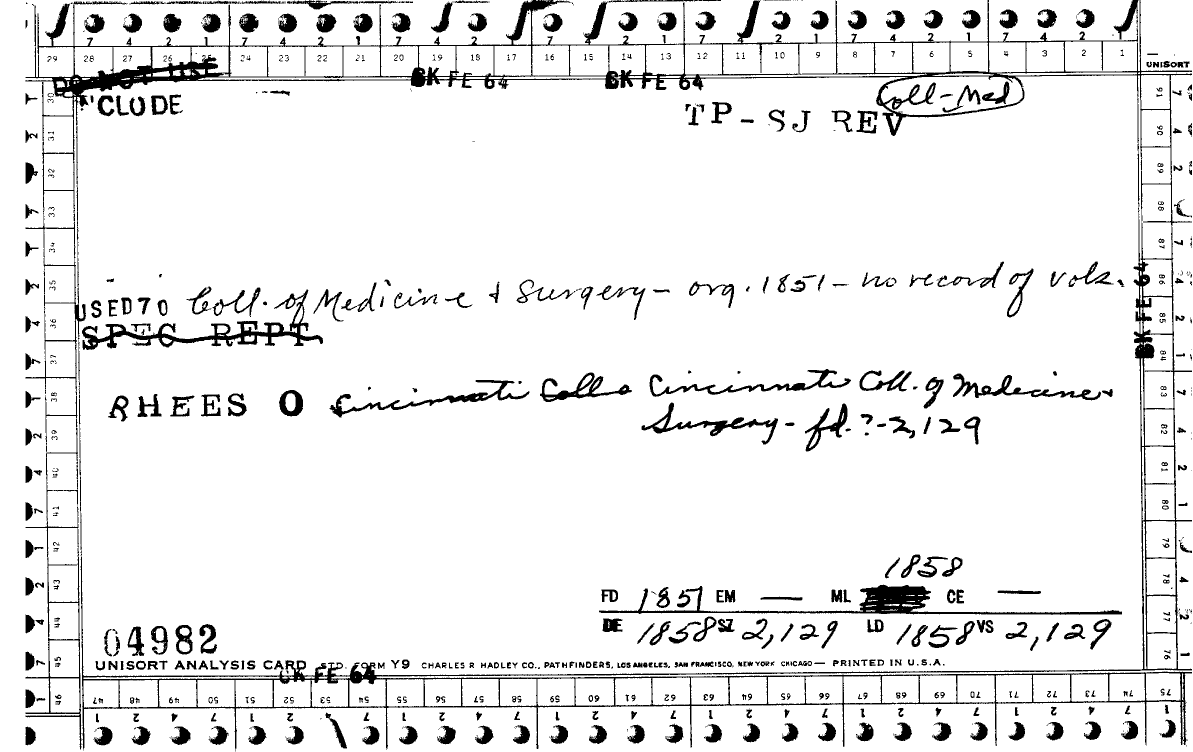 7 4 2 1 7 4 2 1 7 4 2 1 7 4 2 1 7 4 2 1 7 4 2 1 7 4 2
29 28 27 26 25 24 23 22 21 20 19 18 17 16 15 14 13 12 11 10 9 8 7 6 5 4 3 2 1
UNISORT
DO NOT USE
CK FE 64 CK FE 64
CLODE
Coll-Med
TP-SJ REV
USED70 Coll. of Medicine & Surgery - org. 1851 - no record of vols.
SPEC REPT
CK FE 64
RHEES O Cincinnati Coll Cincinnati Coll. of Medicine &
Surgery - fd. ? - 2,129
1858
FD 1851 EM — ML CE —
DE 1858 SZ 2,129 LD 1858 VS 2,129
04982
UNISORT ANALYSIS CARD STD. FORM Y9 CHARLES R HADLEY CO., PATHFINDERS, LOS ANGELES, SAN FRANCISCO, NEW YORK CHICAGO — PRINTED IN U.S.A.
CK FE 64
47 48 49 50 51 52 53 54 55 56 57 58 59 60 61 62 63 64 65 66 67 68 69 70 71 72 73 74 75